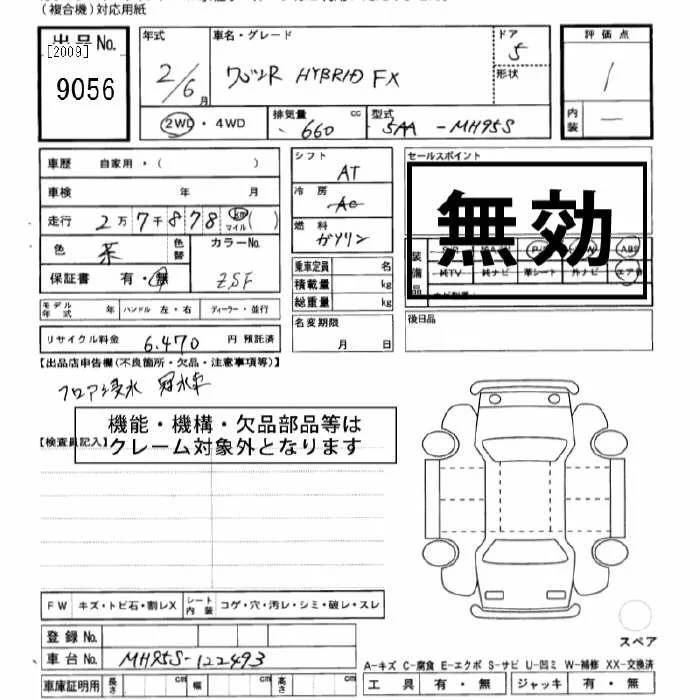 （複合機）対応用紙
出品No.
[2009]
9056
年式
2/6月
車名・グレード
ワゴンR HYBRID FX
ドア
5
形状
評価点
1
内装
ー
2WD・4WD
排気量
660
cc
型式
5AA-MH95S
車歴 自家用・（　）
車検 年 月
走行 2万7千878 km マイル（　）
色 茶 色替
カラーNo.
ZSF
保証書 有・無
モデル年式 年 ハンドル 左・右 ディーラー・並行
リサイクル料金 6.470 円 預託済
シフト
AT
冷房
AC
燃料
ガソリン
乗車定員 名
積載量 kg
総重量 kg
名変期限
月 日
セールスポイント
無効
装備品
ABS
純TV 純ナビ 革シート 外ナビ エアB
後日品
【出品店申告欄（不良箇所・欠品・注意事項等）】
フロア浸水 冠水車
機能・機構・欠品部品等は
クレーム対象外となります
【検査員記入】
FW キズ・トビ石・割レX
シート内装 コゲ・穴・汚レ・シミ・破レ・スレ
登録No.
車台No. MH95S-122493
車庫証明用 長さ cm 幅 cm 高さ cm
スペア
A-キズ C-腐食 E-エクボ S-サビ U-凹ミ W-補修 XX-交換済
工具 有・無 ジャッキ 有・無